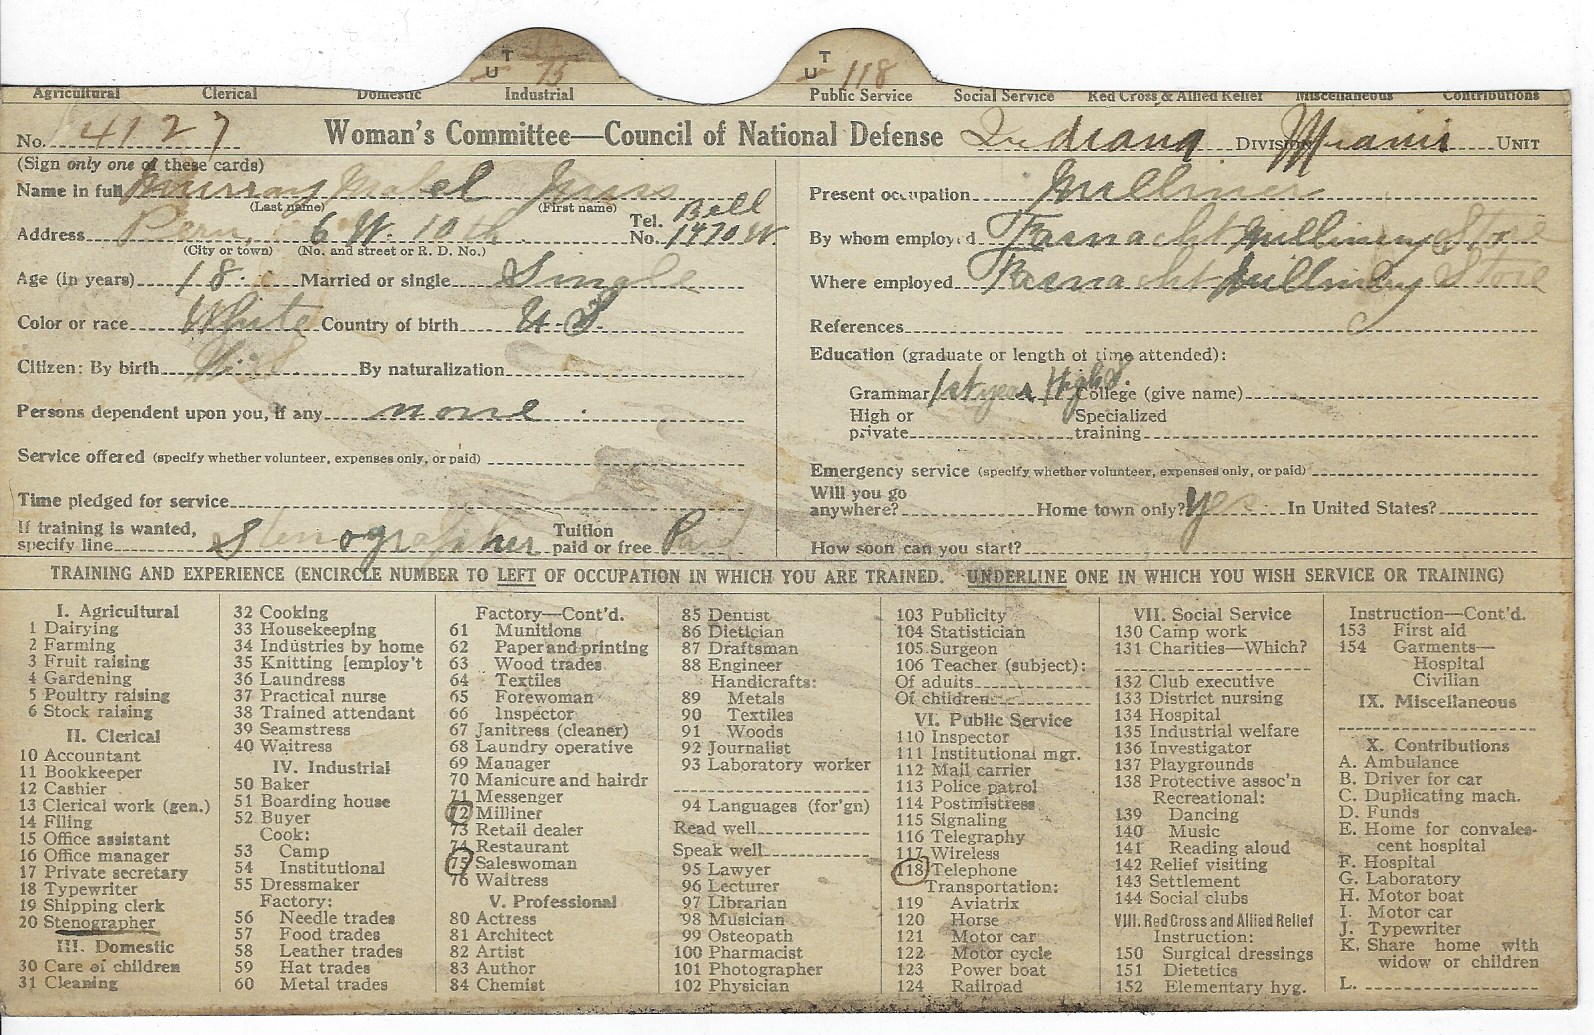 T T
U 75 U 118
Agricultural Clerical Domestic Industrial Public Service Social Service Red Cross & Allied Relief Miscellaneous Contributions
No. 4127 Woman's Committee—Council of National Defense Indiana Division Miami Unit
(Sign only one of these cards)
Name in full Murray Mabel Miss
(Last name) (First name)
Address Peru, 6 W. 10th Tel. No. Bell 1470 W.
(City or town) (No. and street or R. D. No.)
Age (in years) 18 Married or single Single
Color or race White Country of birth U.S.
Citizen: By birth By naturalization
Persons dependent upon you, if any none
Service offered (specify whether volunteer, expenses only, or paid)
Time pledged for service
If training is wanted, specify line Stenographer Tuition paid or free Paid
Present occupation Milliner
By whom employed Fasnacht Millinery Store
Where employed Fasnacht Millinery Store
References
Education (graduate or length of time attended):
Grammar 1st year High S. College (give name)
High or private Specialized training
Emergency service (specify whether volunteer, expenses only, or paid)
Will you go anywhere? Home town only? Yes In United States?
How soon can you start?
TRAINING AND EXPERIENCE (ENCIRCLE NUMBER TO LEFT OF OCCUPATION IN WHICH YOU ARE TRAINED. UNDERLINE ONE IN WHICH YOU WISH SERVICE OR TRAINING)
I. Agricultural
1 Dairying
2 Farming
3 Fruit raising
4 Gardening
5 Poultry raising
6 Stock raising
II. Clerical
10 Accountant
11 Bookkeeper
12 Cashier
13 Clerical work (gen.)
14 Filing
15 Office assistant
16 Office manager
17 Private secretary
18 Typewriter
19 Shipping clerk
20 Stenographer
III. Domestic
30 Care of children
31 Cleaning
32 Cooking
33 Housekeeping
34 Industries by home
35 Knitting [employ't
36 Laundress
37 Practical nurse
38 Trained attendant
39 Seamstress
40 Waitress
IV. Industrial
50 Baker
51 Boarding house
52 Buyer
Cook:
53 Camp
54 Institutional
55 Dressmaker
Factory:
56 Needle trades
57 Food trades
58 Leather trades
59 Hat trades
60 Metal trades
Factory—Cont'd.
61 Munitions
62 Paper and printing
63 Wood trades
64 Textiles
65 Forewoman
66 Inspector
67 Janitress (cleaner)
68 Laundry operative
69 Manager
70 Manicure and hairdr
71 Messenger
72 Milliner
73 Retail dealer
74 Restaurant
75 Saleswoman
76 Waitress
V. Professional
80 Actress
81 Architect
82 Artist
83 Author
84 Chemist
85 Dentist
86 Dietician
87 Draftsman
88 Engineer
Handicrafts:
89 Metals
90 Textiles
91 Woods
92 Journalist
93 Laboratory worker
94 Languages (for'gn)
Read well
Speak well
95 Lawyer
96 Lecturer
97 Librarian
98 Musician
99 Osteopath
100 Pharmacist
101 Photographer
102 Physician
103 Publicity
104 Statistician
105 Surgeon
106 Teacher (subject):
Of adults
Of children
VI. Public Service
110 Inspector
111 Institutional mgr.
112 Mail carrier
113 Police patrol
114 Postmistress
115 Signaling
116 Telegraphy
117 Wireless
118 Telephone
Transportation:
119 Aviatrix
120 Horse
121 Motor car
122 Motor cycle
123 Power boat
124 Railroad
VII. Social Service
130 Camp work
131 Charities—Which?
132 Club executive
133 District nursing
134 Hospital
135 Industrial welfare
136 Investigator
137 Playgrounds
138 Protective assoc'n
Recreational:
139 Dancing
140 Music
141 Reading aloud
142 Relief visiting
143 Settlement
144 Social clubs
VIII. Red Cross and Allied Relief
Instruction:
150 Surgical dressings
151 Dietetics
152 Elementary hyg.
Instruction—Cont'd.
153 First aid
154 Garments—
Hospital
Civilian
IX. Miscellaneous
X. Contributions
A. Ambulance
B. Driver for car
C. Duplicating mach.
D. Funds
E. Home for convales-
cent hospital
F. Hospital
G. Laboratory
H. Motor boat
I. Motor car
J. Typewriter
K. Share home with
widow or children
L.